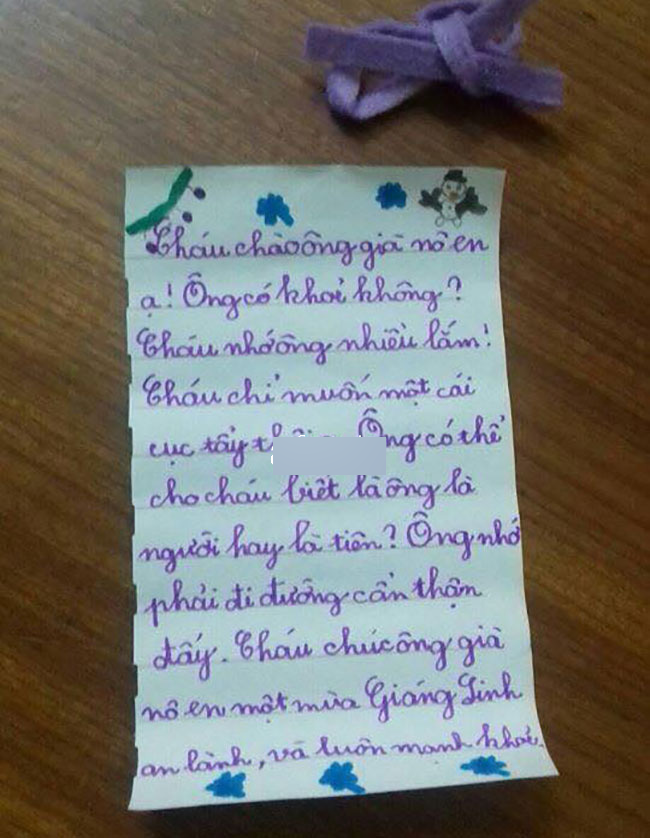 Cháu chào ông già nô en
ạ! Ông có khoẻ không?
Cháu nhớ ông nhiều lắm!
Cháu chỉ muốn một cái
cục tẩy Ông có thể
cho cháu biết là ông là
người hay là tiên? Ông nhớ
phải đi đường cẩn thận
đấy. Cháu chúc ông già
nô en một mùa Giáng Sinh
an lành, và luôn mạnh khoẻ.